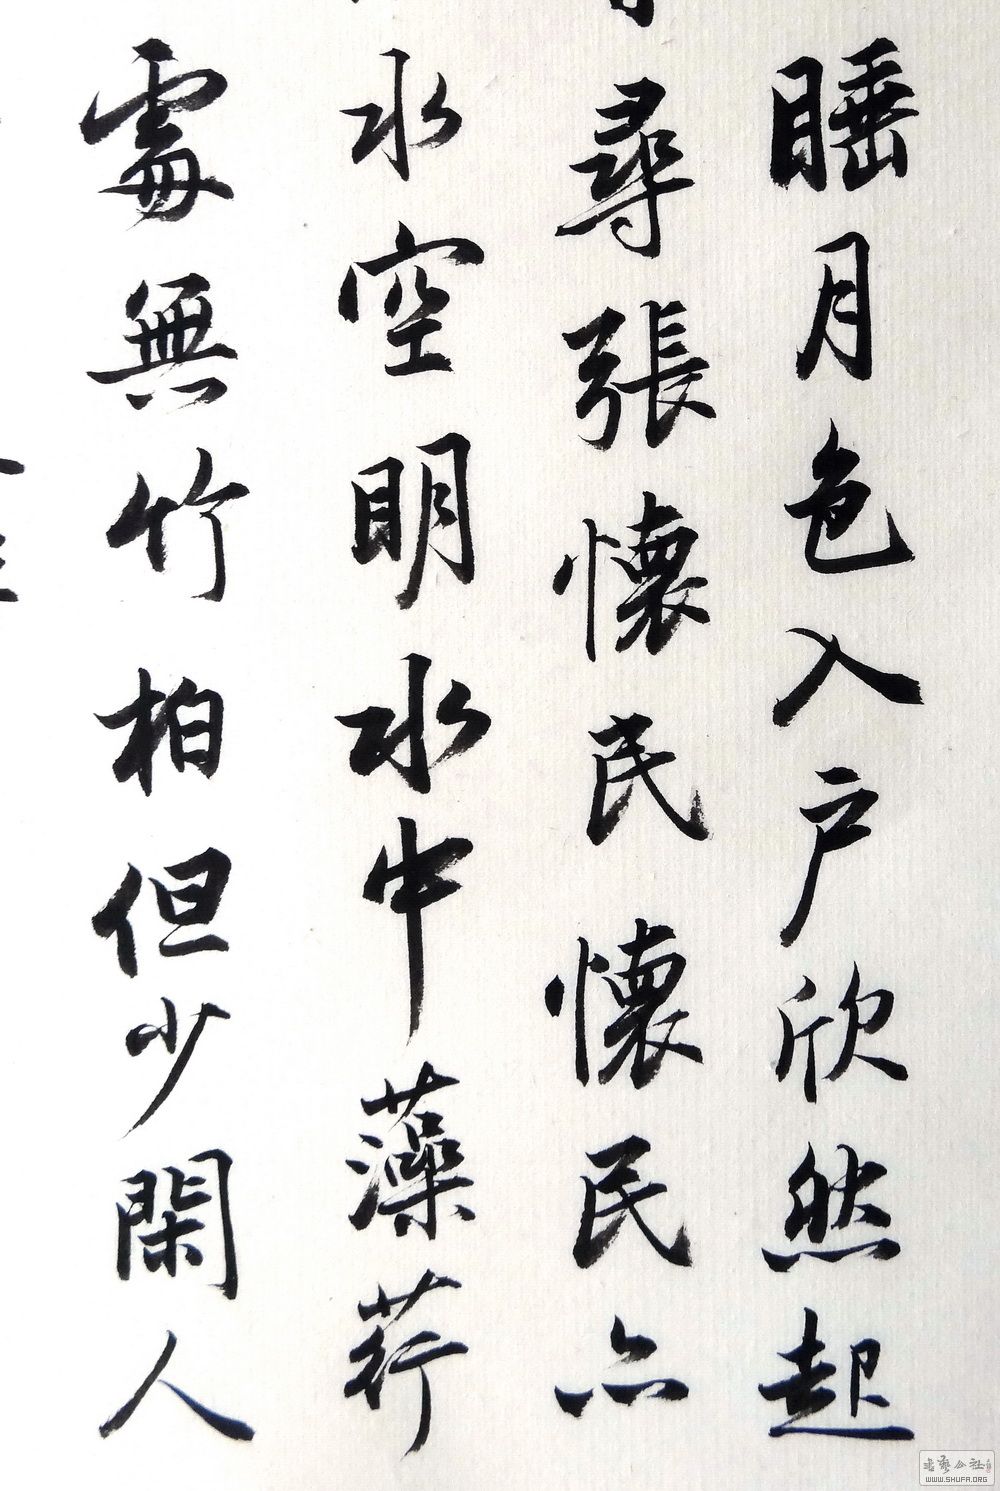 睡月色入户欣然起
尋張懷民懷民亦
水空明水中藻荇
處無竹柏但少閑人
WWW.SHUFA.ORG